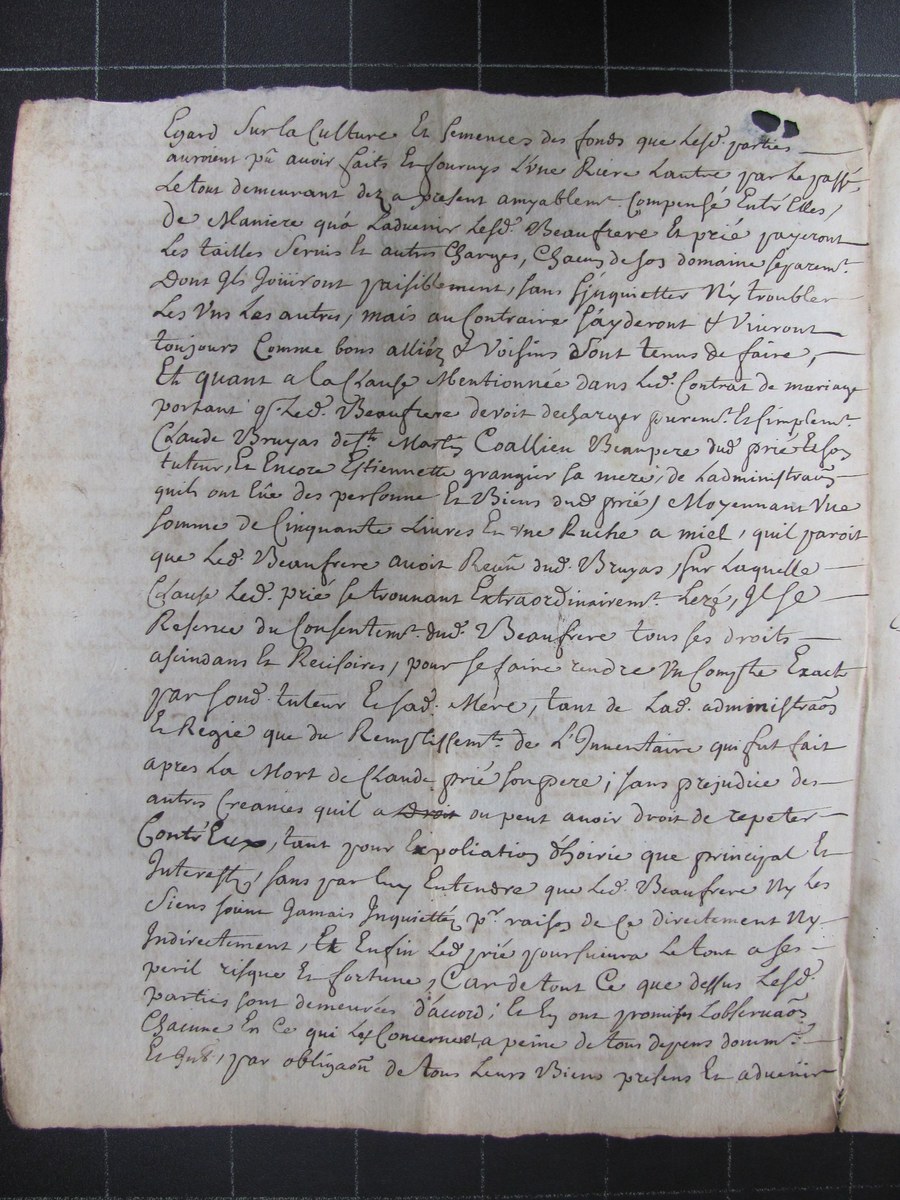 Egard Sur la Culture Et Semences des fonds que Lesd. parties
auroient pû avoir faits Et fournys L'vne Riere Lautre par Le passé,
Le tout demeurant dez a present amyablemt. Compensé Entr'Elles,
de Maniere qu'a Laduenir Lesd. Beaufrere Et prié payeront
Les tailles Seruis Et autres Charges, Chacun de son domaine separemt.
Dont Ils Joüiront paisiblement, sans s'jnquietter N'y troubler
Les Vns Les autres, mais au Contraire s'ayderont & Viuront
toujours Comme bons alliéz & Voisins Sont tenus de faire,
Et quant a la Clause Mentionnée dans Led. Contrat de mariage
portant q. Led. Beaufrere devoit decharger puremt. Et simplemt.
Claude Bruyas de St. Martin Coallieu Beaupere dud. prié Et son
tuteur, Et Encore Estiennette grangier sa mere, de Ladministraon
quils ont Eûe des personne Et Biens dud. prié, Moyennant Vne
Somme de Cinquante Liures Et vne Ruche a miel, quil paroit
que Led. Beaufrere auoit Receu dud. Bruyas, sur Laquelle
Clause Led. prié se trouuant Extraordinairemt. Lezé, Jl se
Reserue du Consentemt. dud. Beaufrere tous ses droits
rescindans Et Recisoires, pour se faire rendre Vn Compte Exact
par sond. tuteur Et sad. Mere, tant de Lad. administraon
Et Regie que du Remplissemt. de L'Jnuentaire qui fut fait
apres La Mort de Claude prié son pere; sans prejudice des
autres Creances quil a Droit ou peut auoir droit de repeter
Contr'Eux, tant pour Expoliation d'hoirie que principal Et
Interestz, sans par luy Entendre que Led. Beaufrere Ny les
Siens soient Jamais Jnquiettéz pr. raison de Ce directement Ny
Jndirectement, Et Enfin Led. prié poursuiura Le tout a ses
peril risque Et fortune, Car de tout Ce que dessus Lesd.
parties sont demeurées d'acord; Et En ont promis Lobseruaon
Chacune En Ce qui Les Concernent, a peine de tous depens dommt.
Et Jntt., par obligaon de tous Leurs Biens presens Et aduenir